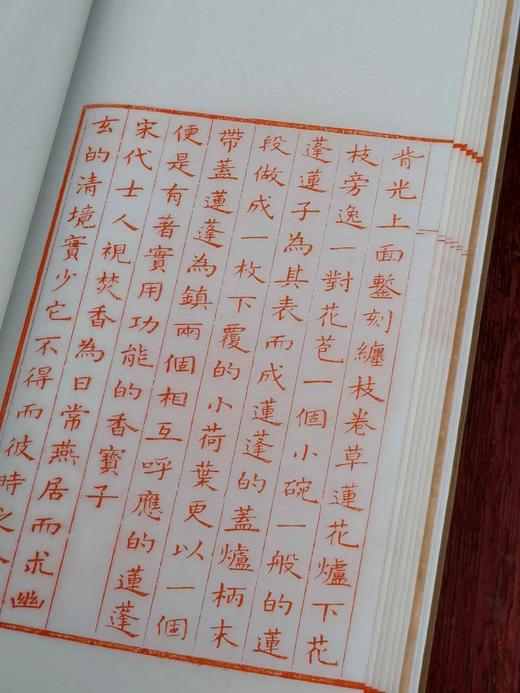 背光上面鏨刻纏枝卷草蓮花爐下花
枝旁逸一對花苞一個小碗一般的蓮
蓬蓮子為其表而成蓮蓬的蓋爐柄末
段做成一枚下覆的小荷葉更以一個
帶蓋蓮蓬為鎮兩個相互呼應的蓮蓬
便是有著實用功能的香寶子
宋代士人視焚香為日常燕居而求幽
玄的清境實少它不得而彼時之人